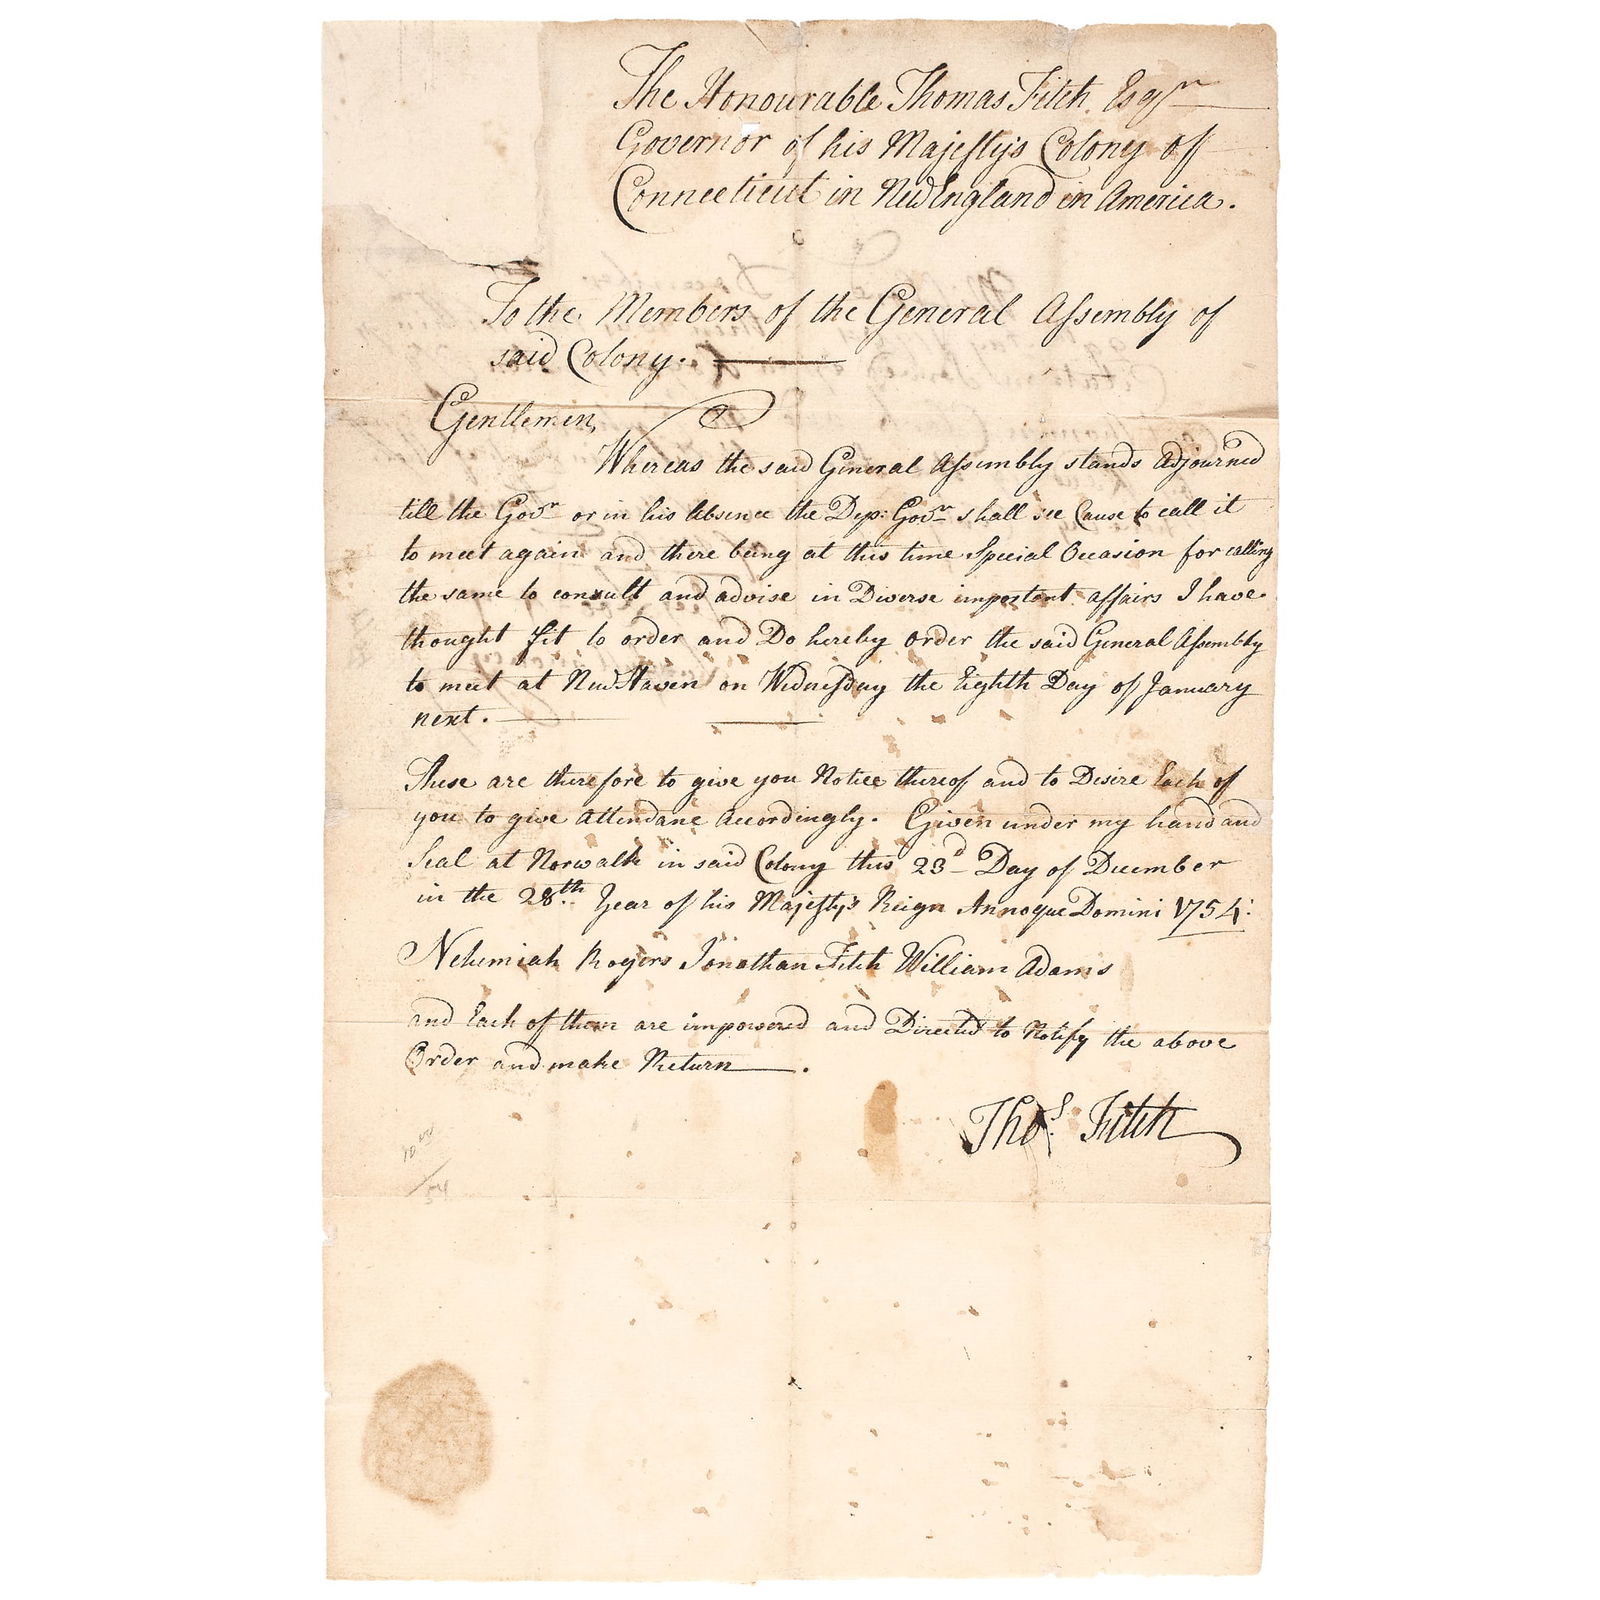 The Honourable Thomas Fitch Esqr
Governor of his Majesty's Colony of
Connecticut in New England in America.
To the Members of the General Assembly of
said Colony.
Gentlemen,
Whereas the said General Assembly stands Adjourned
till the Govr or in his Absence the Dep: Govr shall see Cause to call it
to meet again and there being at this time Special Occasion for calling
the same to consult and advise in Diverse important affairs I have
thought fit to order and Do hereby order the said General Assembly
to meet at New Haven on Wednesday the Eighth Day of January
next.
These are therefore to give you Notice thereof and to Desire Each of
you to give Attendane Accordingly. Given under my hand and
Seal at Norwalk in said Colony this 23d Day of December
in the 28th Year of his Majesty's Reign Annoque Domini 1754:
Nehemiah Rogers Jonathan Fitch William Adams
and Each of them are impowered and Directed to Notify the above
Order and make Return.
Thos. Fitch